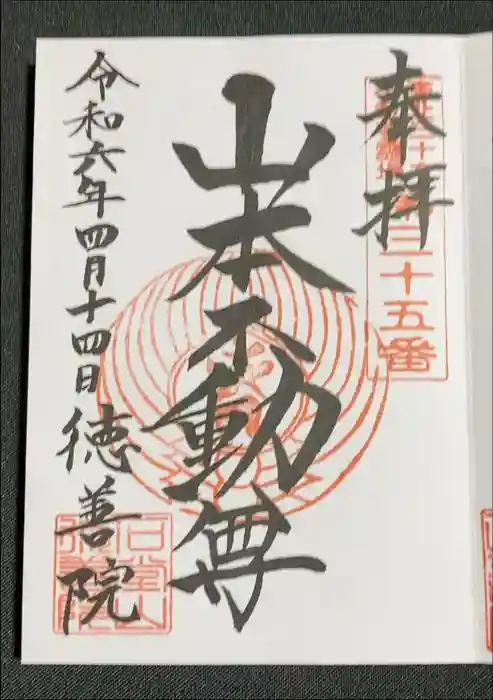 奉拝
三十五番
山本不動尊
令和六年四月十四日
徳善院